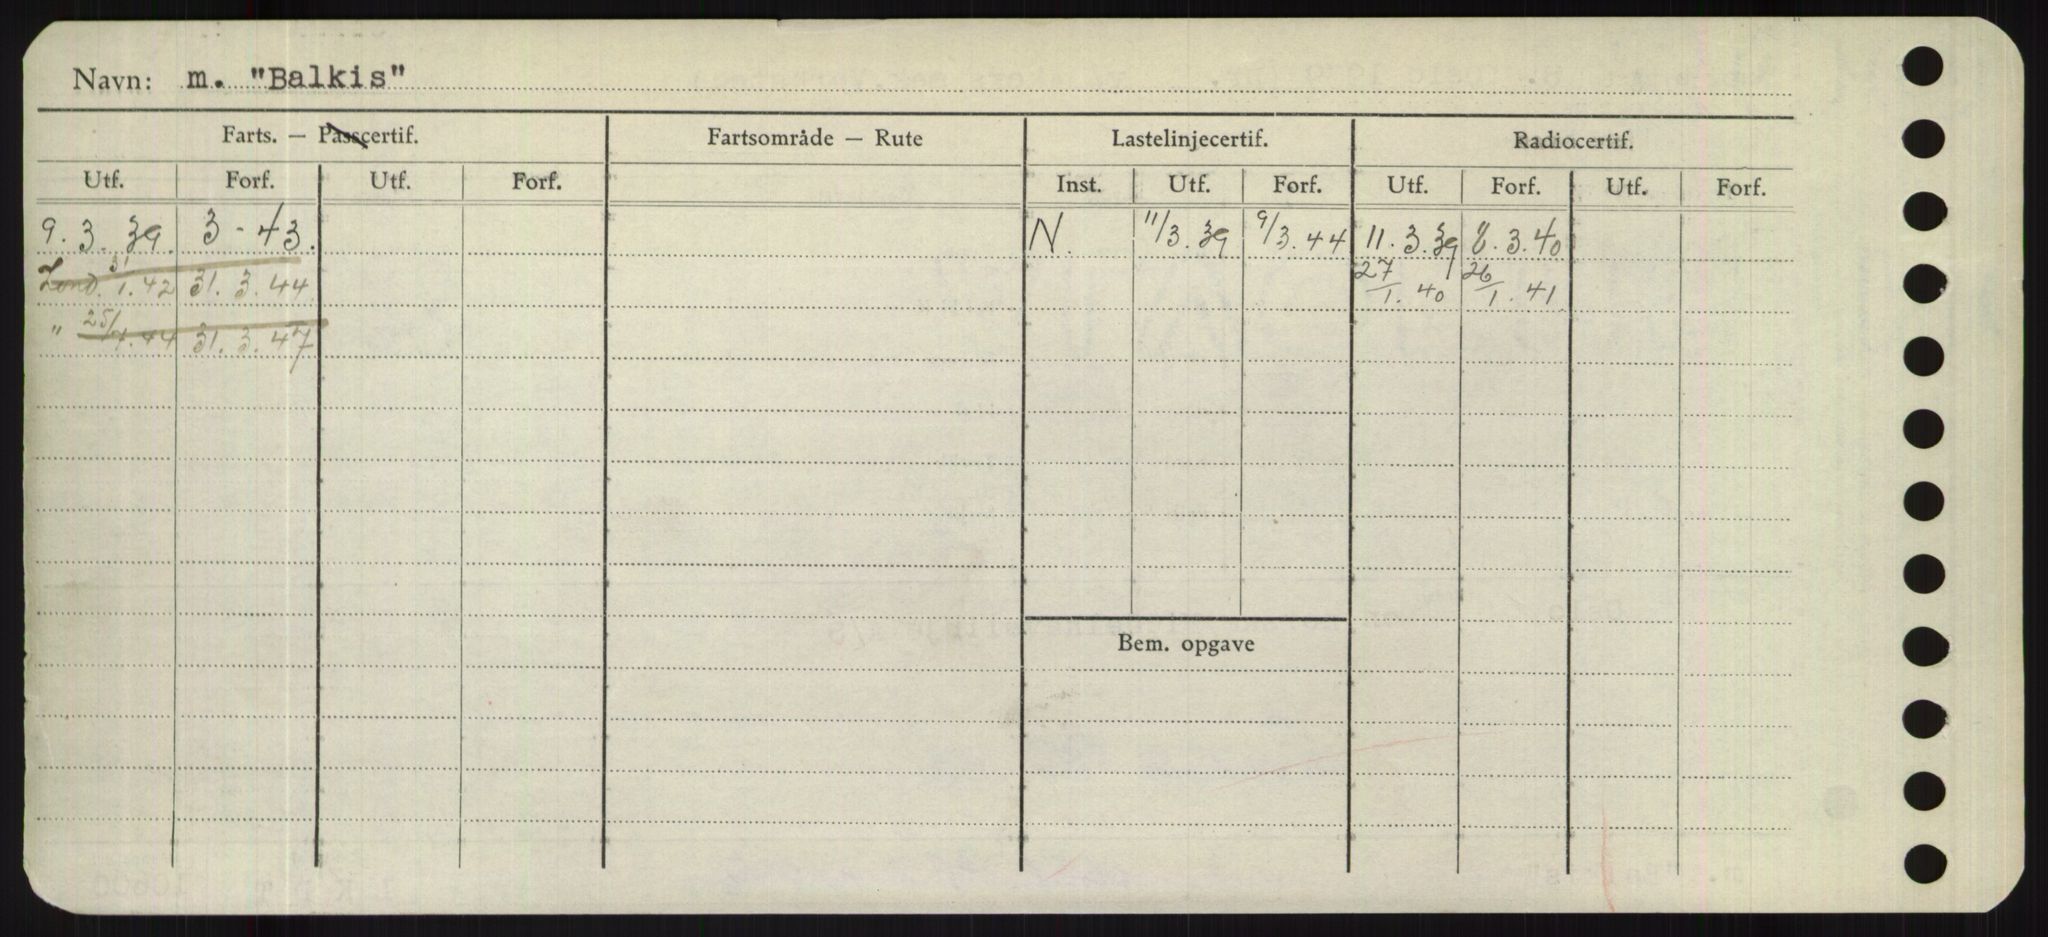 Navn: m. "Balkis"
Farts. — Passcertif. Fartsområde — Rute Lastelinjecertif. Radiocertif.
Utf. Forf. Utf. Forf. Inst. Utf. Forf. Utf. Forf. Utf. Forf.
9. 3. 39. 3 - 43. N. 11/3. 39 9/3. 44 11. 3. 39 8. 3. 40
Lond. 31/1. 42 31. 3. 44 27/1. 40 26/1. 41
" 25/4. 44 31. 3. 47
Bem. opgave